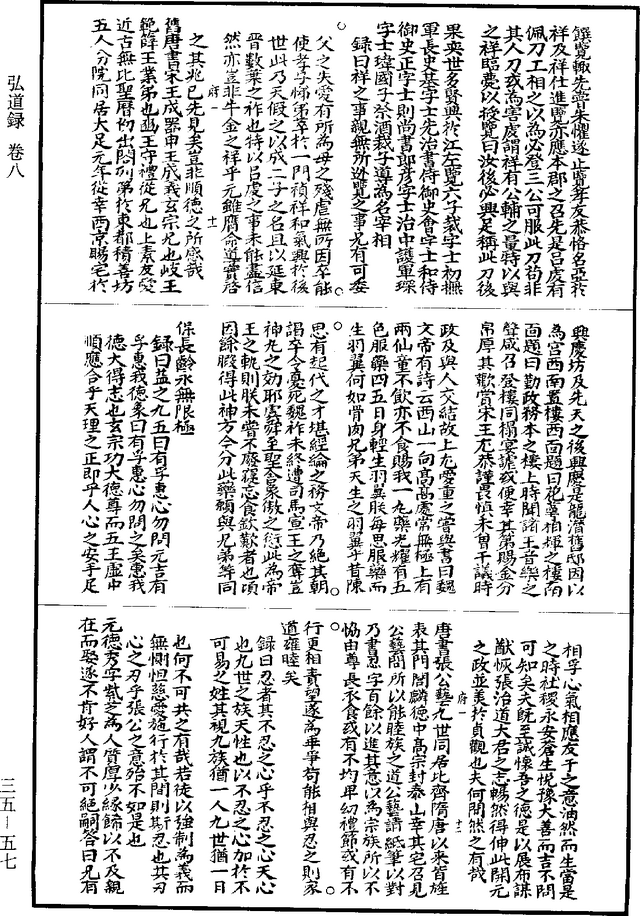 弘道錄 卷八
三五—五七
饌覽輒先嘗朱懼遂止覽孝友恭恪名亞於
祥及祥仕進覽亦應本郡之召先是呂虔有
佩刀工相之以為必登三公可服此刀茍非
其人刀或為害虔謂祥有公輔之量特以與
之祥臨薨以授覽曰汝後必興足稱此刀後
果奕世多賢興於江左覽六子裁字士初撫
軍長史基字士先治書侍御史會字士和侍
御史正字士則尚書郎彥字士治中護軍琛
字士瑋國子祭酒裁子導為名宰相
錄曰祥之事親無所逃覽之事兄有可委
父之失愛有所為母之殘虐無所因卒能
使孝子悌弟萃於一門禎祥和氣興於後
世此乃天假之以成二子之名且以延東
晉數葉之祚也特以呂虔之事未能盡信
府一 十一
然亦豈非牛金之祥乎元雖膺命導實啓
之其兆已先見矣豈非順德之所感哉
舊唐書宋王成器申王成義玄宗兄也岐王
範薛王業弟也豳王守禮從兄也上素友愛
近古無比聖曆初出閤列第於東都積善坊
五人分院同居大足元年從幸西京賜宅於
興慶坊及先天之後興慶是龍潛舊邸因以
為宮西南置樓西面題曰花萼相輝之樓南
面題曰勤政務本之樓上時聞諸王音樂之
聲咸召登樓同榻宴謔或便幸其第賜金分
帛厚其歡賞宋王尤恭謹畏慎未曾干議時
政及與人交結故上尤愛重之嘗與書曰魏
文帝有詩云西山一向高高處常無極上有
兩仙童不飲亦不食賜我一丸藥光耀有五
色服藥四五日身輕生羽翼朕每思服藥而
生羽翼何如骨肉兄弟天生之羽翼乎昔陳
思有起代之才堪經綸之務文帝乃絕其朝
謁卒令憂死魏祚未終遭司馬宣王之奪豈
神丸之効耶虞舜至聖舍象傲之愆此為帝
王之軌則朕未嘗不廢寢忘食歎歎者也頃
因餘暇得此神方今分此藥願與兄弟等同
保長齡永無限極
錄曰益之九五曰有孚惠心勿問元吉有
孚惠我德象曰有孚惠心勿問之矣惠我
德大得志也玄宗功大德尊而五王虛中
順應合乎天理之正即乎人心之安手足
相孚心氣相應友于之意油然而生當是
之時社稷永安蒼生悅豫大善而吉不問
可知矣夫既至誠懷吾之德是以展布謀
猷恢張治道大君之志暢然得伸此開元
之政並美於貞觀也夫何間然之有哉
府一 十二
唐書張公藝九世同居北齊隋唐以來皆旌
表其門閭麟德中高宗封泰山幸其宅召見
公藝問所以能睦族之道公藝請紙筆以對
乃書忍字百餘以進其意以為宗族所以不
恊由尊長衣食或有不均卑幼禮節或有不
行更相責望遂為乖爭苟能相與忍之則家
道雍睦矣
錄曰忍者其不忍之心乎不忍之心天心
也九世之族天性也以不忍之心加於不
可易之姓其視九族猶一人九世猶一日
也何不可共之有哉若徒以強制為義而
無惻怛慈愛施行於其間則斯忍也其刃
心之刃乎張公之意殆不如是也
元德秀字紫芝為人質厚少緣飾以不及親
在而娶遂不肯好人謂不可絕嗣答曰兄有